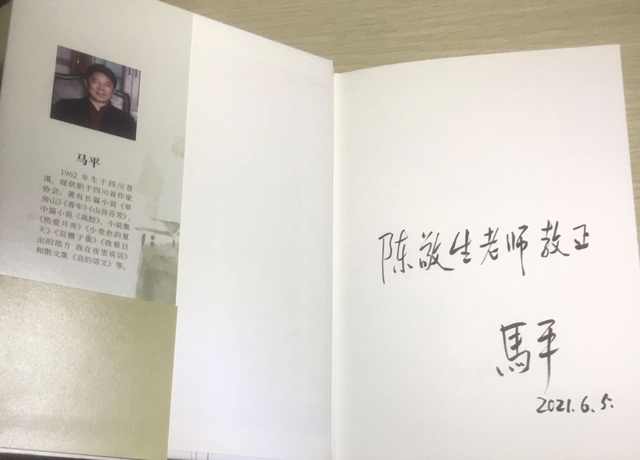 马平
1962 年生于四川苍
溪，现供职于四川省作家
协会。著有长篇小说《草
房山》《香车》《山谷芬芳》，
中篇小说《高腔》，小说集
《热爱月亮》《小麦色的夏
天》《双栅子街》《我看日
出的地方 我在夜里说话》
和散文集《我的语文》等。
陈敬生老师教正
馬平
2021.6.5.